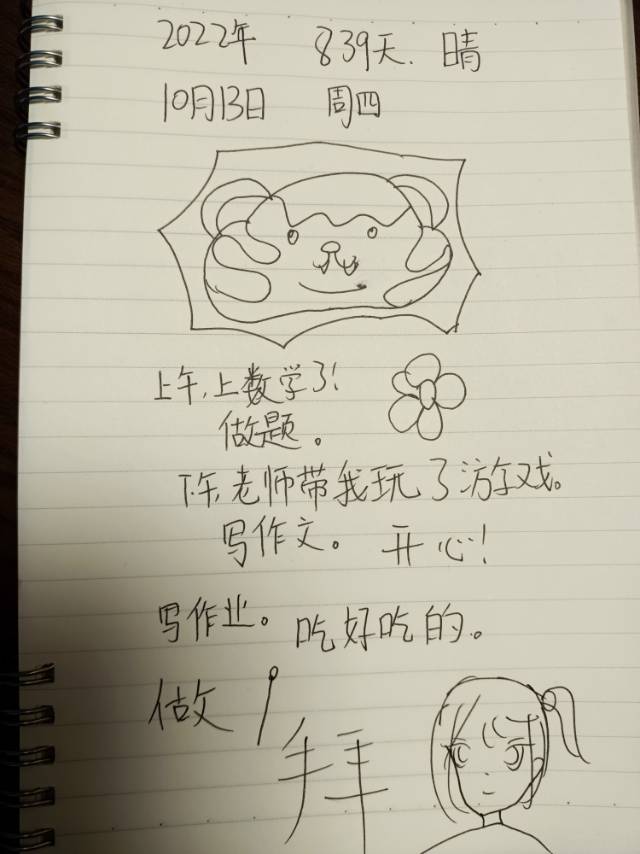 2022年 839天. 晴
10月13日 周四
上午,上数学了!
做题。
下午,老师带我玩了游戏。
写作文。 开心!
写作业。吃好吃的。
做
拜